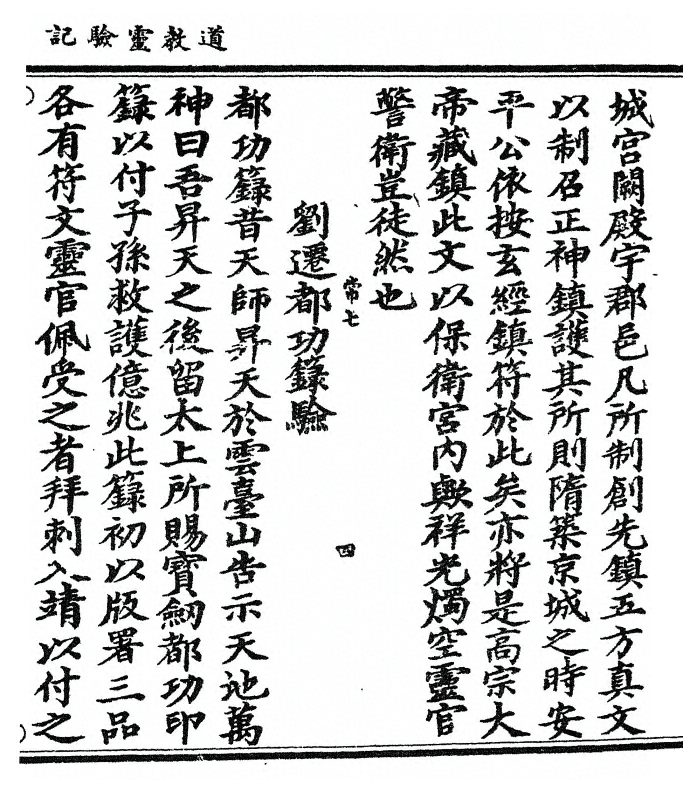 道教靈驗記
城宮闕殿宇郡邑凡所制創先鎮五方真文
以制召正神鎮護其所則隋築京城之時安
平公依按玄經鎮符於此矣亦將是高宗大
帝藏鎮此文以保衛宮内歟祥光燭空靈官
警衛豈徒然也
常七　四
劉遷都功籙驗
都功籙昔天師昇天於雲臺山告示天地萬
神曰吾昇天之後留太上所賜寶劒都功印
籙以付子孫救護億兆此籙初以版署三品
各有符文靈官佩受之者拜刺入靖以付之